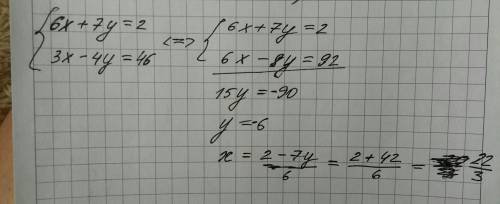 {6x+7y=2
{3x-4y=46
<=>
{6x+7y=2
{6x-8y=92
15y=-90
y=-6
x = (2-7y)/6 = (2+42)/6 = 22/3